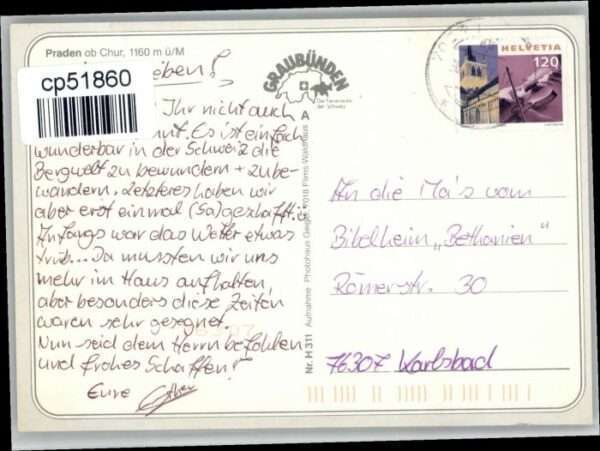 Praden ob Chur, 1160 m ü/M
cp51860
GRAUBÜNDEN
Die Ferienecke
der Schweiz
HELVETIA
120
A
Nr. H 311 Aufnahme Photohaus Geiger 7018 Flims-Waldhaus
Ihr nicht auch
Es ist einfach
wunderbar in der Schweiz die
Bergwelt zu bewundern + zu be-
wandern. Letzteres haben wir
aber erst einmal (Sa) geschafft.
Anfangs war das Wetter etwas
trüb... Da mussten wir uns
mehr im Haus aufhalten,
aber besonders diese Zeiten
waren sehr gesegnet.
Nun seid dem Herrn befohlen
und frohes Schaffen!
Eure
An die Ma's vom
Bibelheim „Bethanien"
Römerstr. 30
76307 Karlsbad